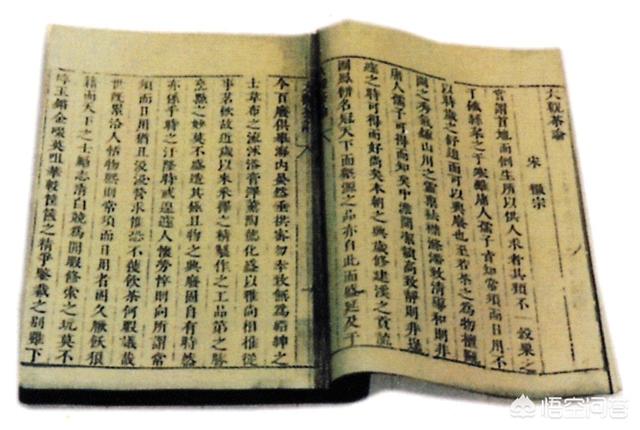 大觀茶論
宋 徽宗
嘗謂首地而倒生所以供人求者其類不一穀粟之
于饑絲枲之于寒雖庸人孺子皆知常須而日用不
以時歲之舒迫而可以興廢也至若茶之為物擅甌
閩之秀氣鍾山川之靈禀祛襟滌滯致清導和則非
庸人孺子可得而知矣中澹閒潔韻高致靜則非遑
遽之時可得而好尚矣本朝之興歲修建溪之貢龍
團鳳餅名冠天下而壑源之品亦自此而盛延及于
今百廢俱舉海內晏然垂拱密勿幸致無為縉紳之
士韋布之流沐浴膏澤薰陶德化盛以雅尚相推從
事茗飲故近歲以來采擇之精製作之工品第之勝
烹點之妙莫不盛造其極且物之興廢固自有時然
亦係乎時之汙隆時或遑遽人懷勞悴則向所謂常
須而日用猶且汲汲營求惟恐不獲飲茶何暇議哉
世既累洽人恬物熙則常須而日用者固久厭飫狼
籍而天下之士勵志清白競為閒暇修索之玩莫不
碎玉鏘金啜英咀華較筐篋之精爭鑒裁之別雖下
悟空问答